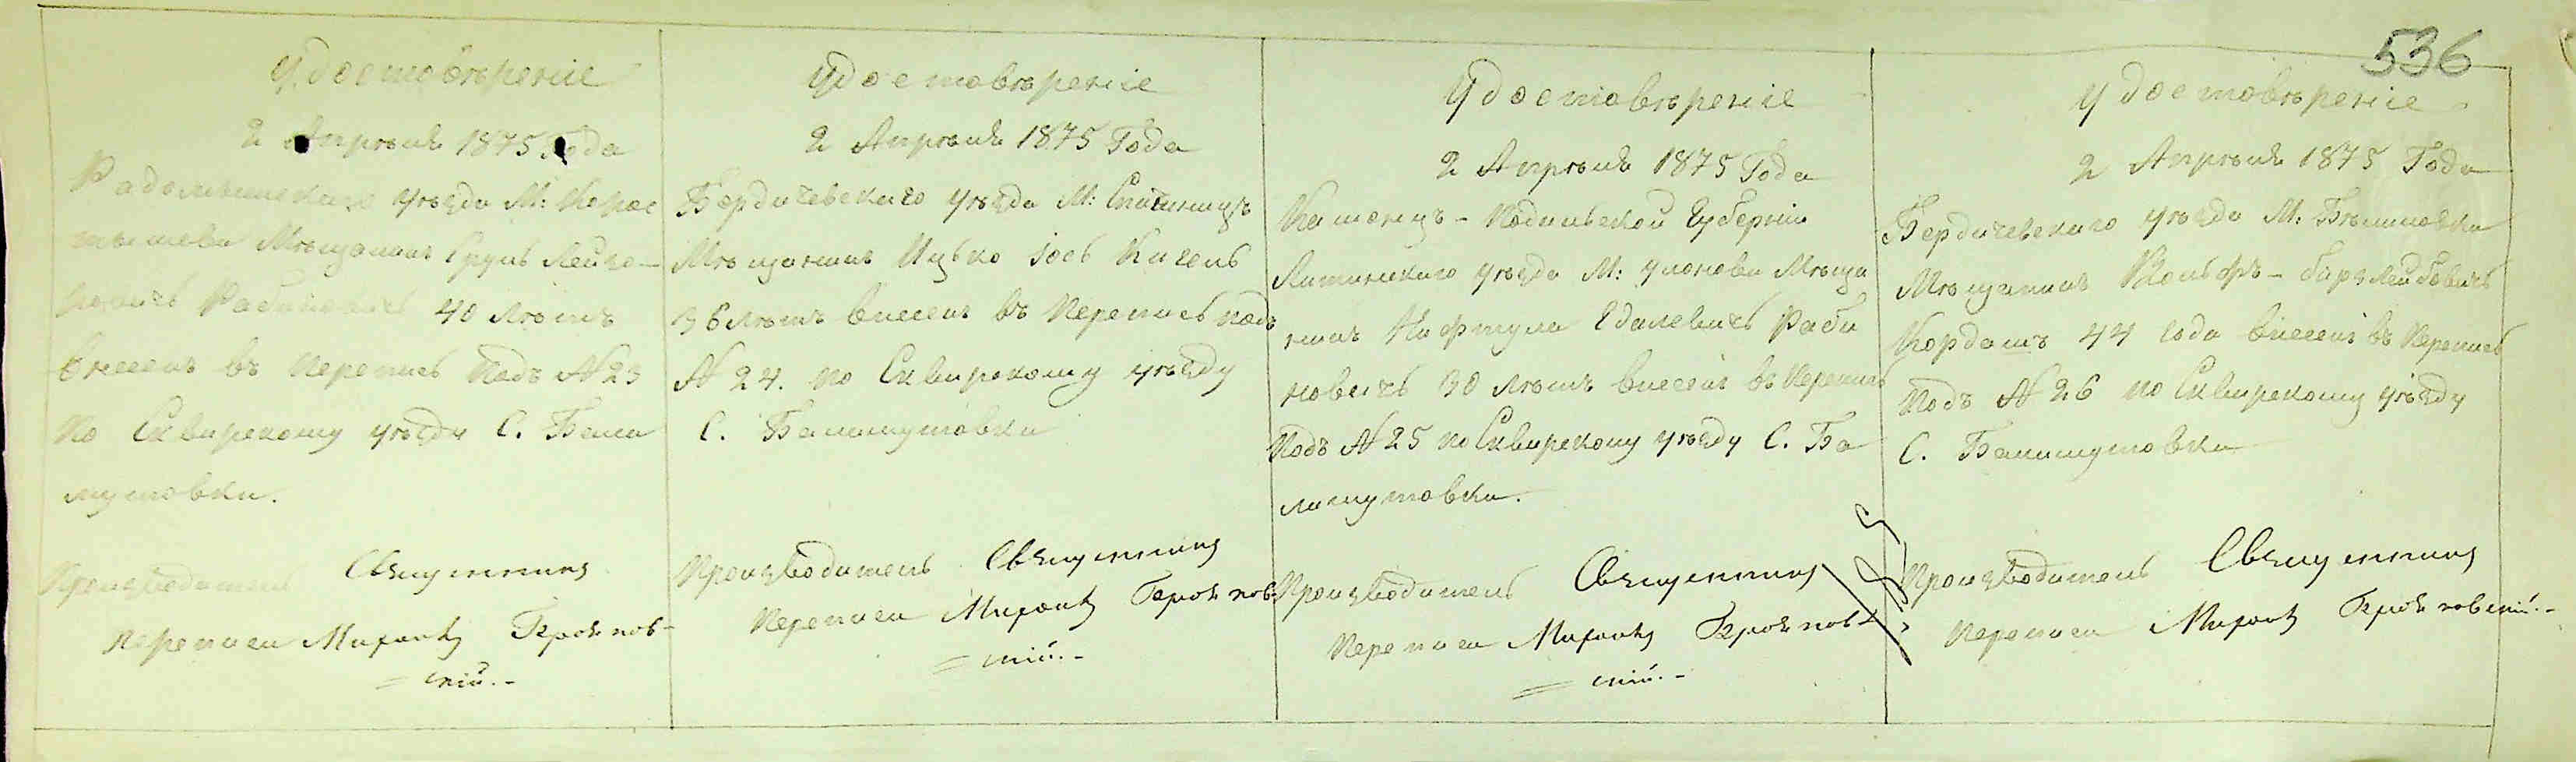 536
Удостовѣреніе
2 Апрѣля 1875 Года
Радомышскаго уѣзда М: Корос
тышева Мѣщанинъ Сруль Лейзе-
ровичъ Рабиновичъ 40 лѣтъ
внесенъ въ перепись Подъ № 23
по Сквирскому уѣзду С. Бала
мутовки.
Производитель Священникъ
переписи
скій.-
Удостовѣреніе
2 Апрѣля 1875 Года
Бердичевскаго уѣзда М: Спичинецъ
Мѣщанинъ Ицько Іось Кигель
36 лѣтъ внесенъ въ перепись подъ
№ 24. по Сквирскому уѣзду
С. Баламутовки
Производитель Священникъ
переписи
скій.-
Удостовѣреніе
2 Апрѣля 1875 Года
Каменецъ-Подольской Губерніи
Литинскаго уѣзда М: Уланова Мѣща
нинъ Нафтула Раби
новичъ 30 лѣтъ внесенъ въ перепись
Подъ № 25 по Сквирскому уѣзду С. Ба
ламутовки.
Производитель Священникъ
переписи
скій.-
Удостовѣреніе
2 Апрѣля 1875 Года
Бердичевскаго уѣзда М: Бѣлиловки
Мѣщанинъ Вольфъ-
44 года внесенъ въ перепись
Подъ № 26 по Сквирскому уѣзду
С. Баламутовки
Производитель Священникъ
переписи